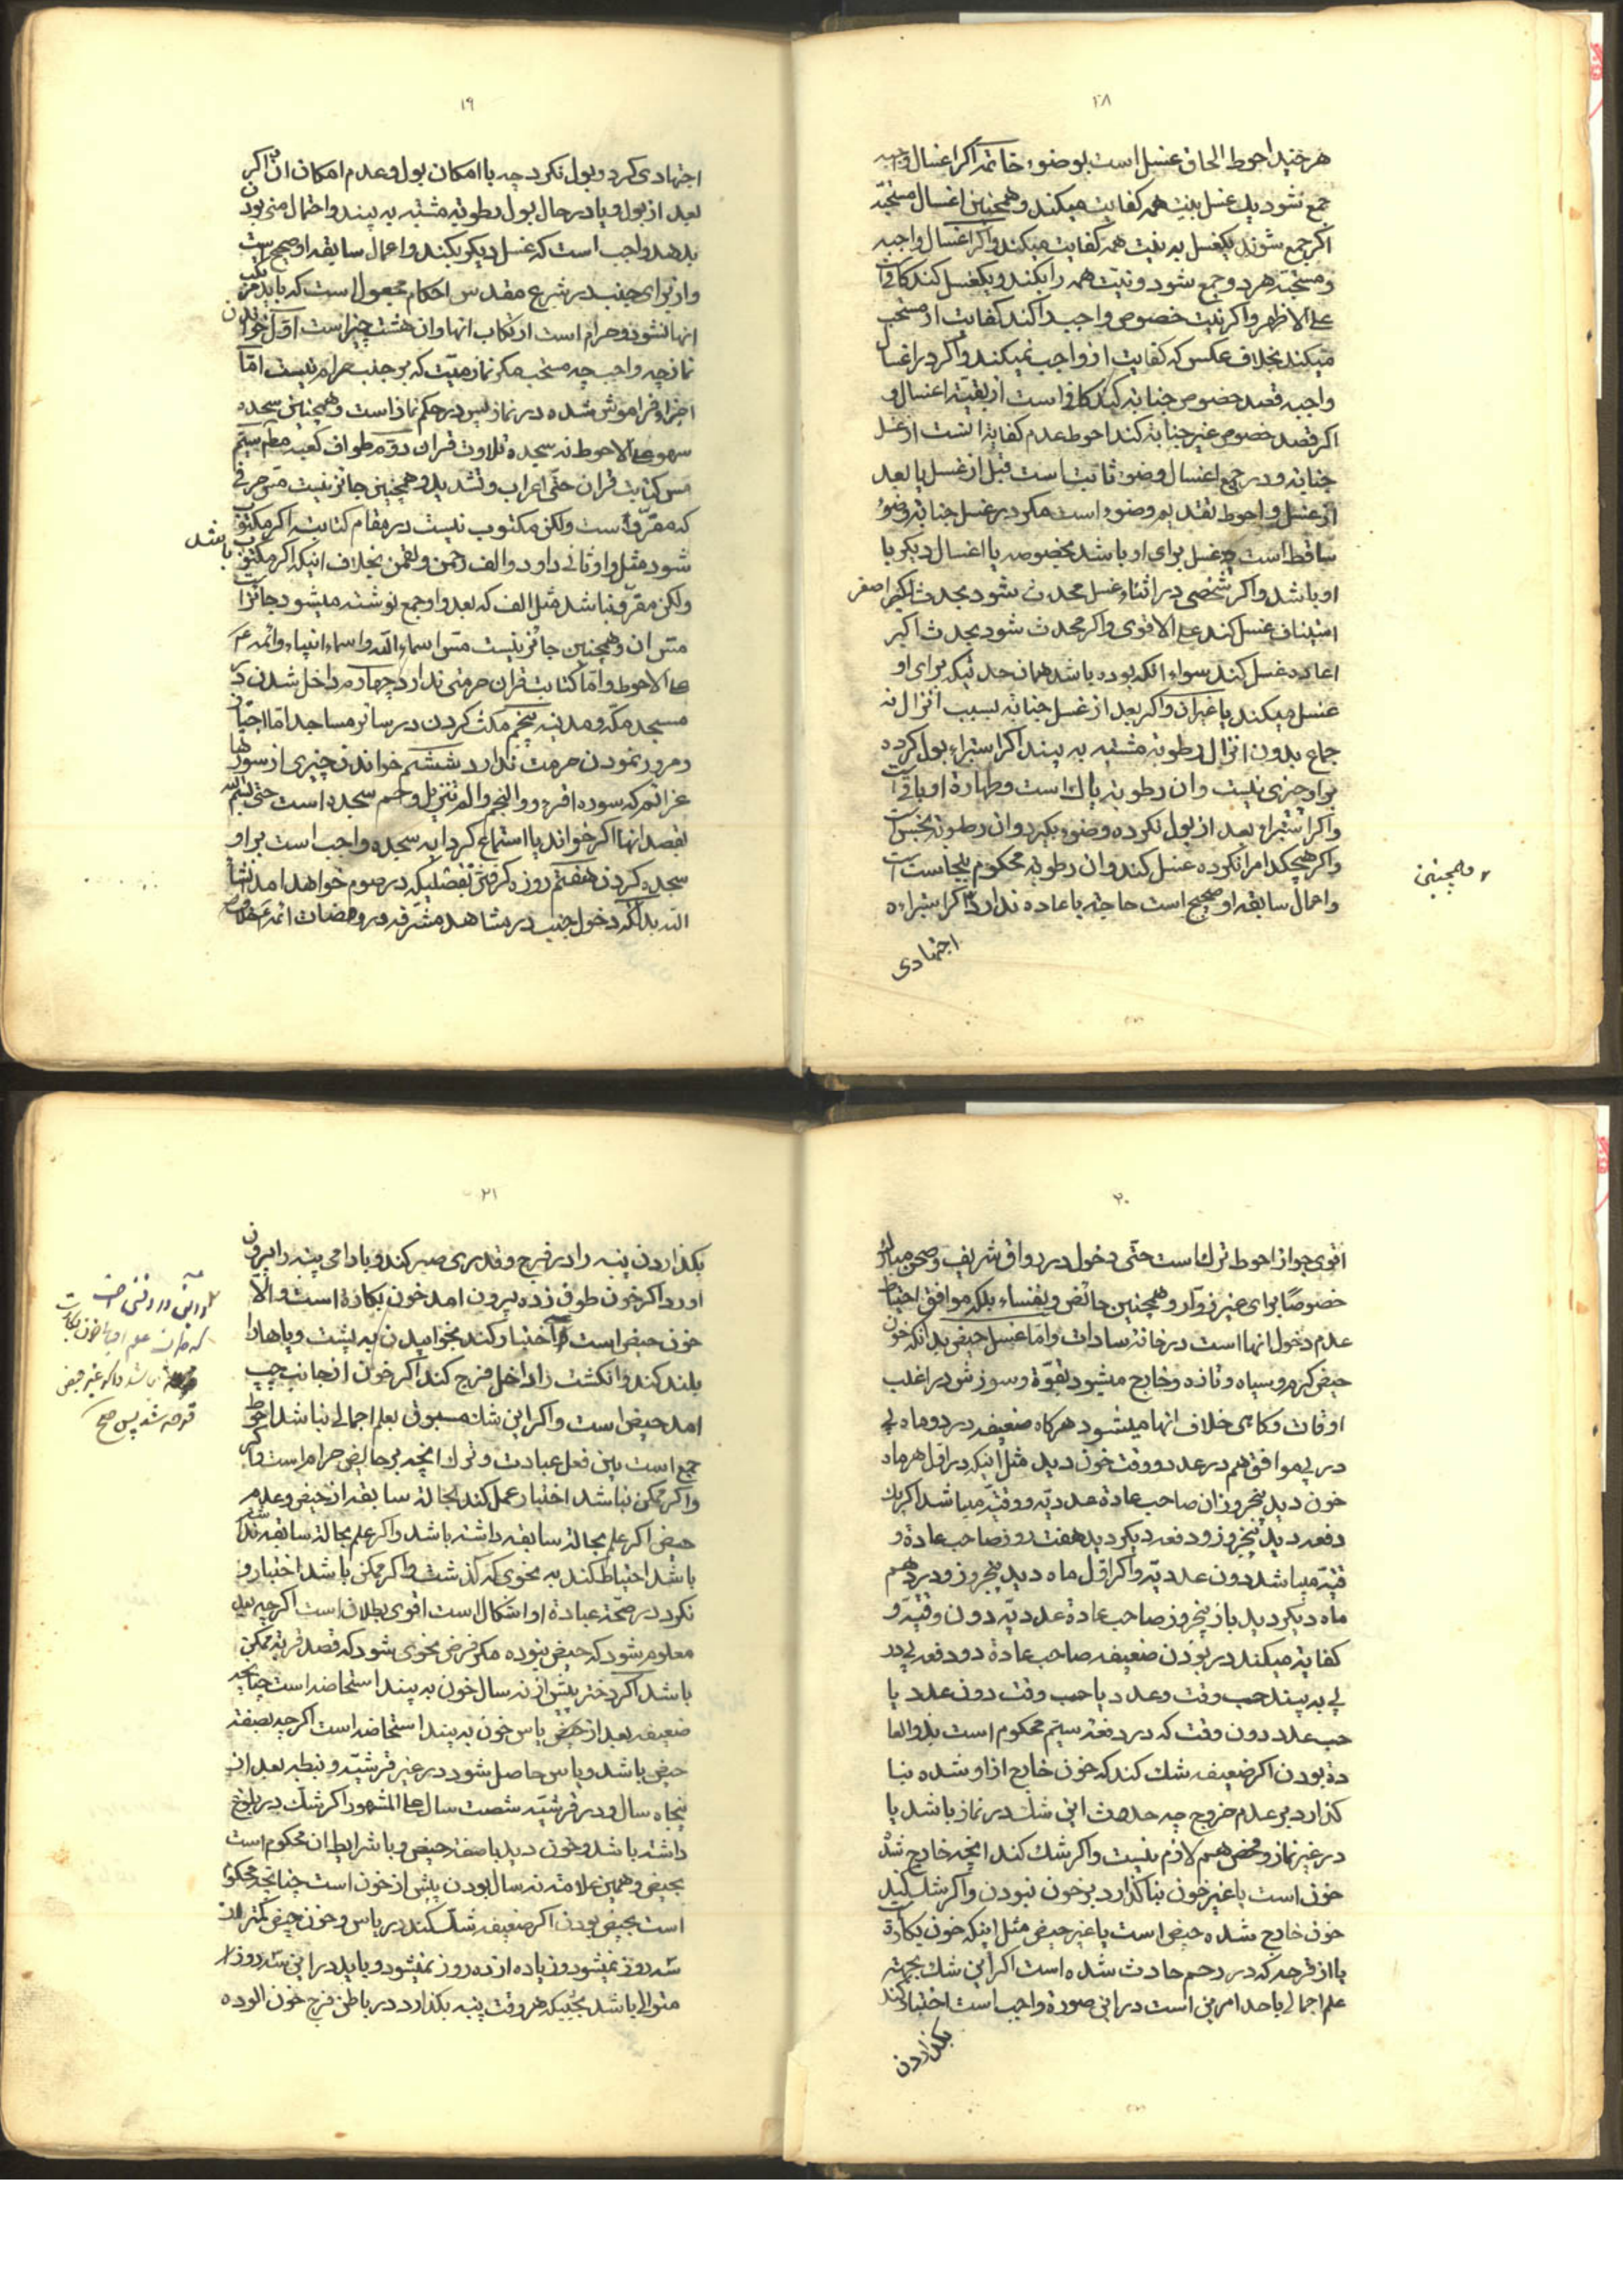 ۱۸
هر چند احوط الحاق غسل است بوضوء خاتمه اگر اغسال واجبه
جمع شود یك غسل بنیت همه کفایت میکند و همچنین اغسال مستحبّه
اگر جمع شوند یکغسل به نیت همه کفایت میکند و اگر اغسال واجبه
و مستحبّه هر دو جمع شود و نیّت همه را بکند و یکغسل کند کافی است
علی الاظهر و اگر نیت خصوص واجب را کند کفایت از مستحب
میکند بخلاف عکس که کفایت از واجب نمیکند و اگر در اغسال
واجبه قصد خصوص جنابة کند کافی است از بقیّة اغسال و
اگر قصد خصوص غیر جنابة کند احوط عدم کفایة انست از غسل
جنابة و در جمیع اغسال وضوء ثابت است قبل از غسل یا بعد
از غسل و احوط تقدیم وضوء است مگر در غسل جنابة که وضوء
ساقط است چه غسل برای او باشد بخصوصه یا اغسال دیگر با
او باشد و اگر شخصی در اثناء غسل محدث شود بحدث اصغر
استیناف غسل کند علی الاقوی و اگر محدث شود بحدث اکبر
اعاده غسل کند سواء انکه بوده باشد همان حدثیکه برای او
غسل میکند یا غیر ان و اگر بعد از غسل جنابة بسبب انزال نه
جماع بدون انزال رطوبة مشتبه به بیند اگر استبراء بول کرده
بر او چیزی نیست و ان رطوبة پاك است و طهارة او باقی است
و اگر استبراء بعد از بول نکرده وضوء بگیرد و ان رطوبة نجس است
و اگر هیچکدام را نکرده غسل کند و ان رطوبة محکوم بنجاست است
و اعمال سابقه او صحیح است حاجة باعاده ندارد و اگر استبراء
اجتهادی
و همچنین
۱۹
اجتهادی کرد و بول نکرد چه با امکان بول و عدم امکان ان اگر
بعد از بول و یا در حال بول رطوبة مشتبه به بیند و احتمال منی بودن
بدهد واجب است که غسل دیگر بکند و اعمال سابقه او صحیح است
و از برای جنب در شرع مقدس احکام مجعول است که باید مرتکب
انها نشود و حرام است ارتکاب انها و ان هشت چیز است اوّل خواندن
نماز چه واجب چه مستحب مگر نماز میّت که بر جنب حرام نیست امّا
اجزاء فراموش شده در نماز پس در حکم نماز است و همچنین سجده
سهو علی الاحوط نه سجده تلاوت قران دوّم طواف کعبه معظمه سیّم
مس کتابت قران حتّی اعراب و تشدید و همچنین جائز نیست مس حرفی
که مقروّ است ولکن مکتوب نیست در مقام کتابت اگر مکتوب
شود مثل واو ثانی داود و الف رحمن و لقمن بخلاف اینکه اگر مکتوب باشد
ولکن مقروّ نباشد مثل الف که بعد واو جمع نوشته میشود جائز است
مس ان و همچنین جائز نیست مس اسماء الله و اسماء انبیاء و ائمه ع
علی الاحوط و امّا کتابت قران حرمتی ندارد چهارم داخل شدن در
مسجد مکّه و مدینه پنجم مکث کردن در سائر مساجد امّا اجتیاز
و مرور نمودن حرمت ندارد ششم خواندن چیزی از سورها
عزائم که سوره اقرء و النجم و الم تنزیل و حم سجده است حتی بسم الله
بقصد انها اگر خواند یا استماع کرد ایه سجده واجب است بر او
سجده کردن هفتم روزه گرفتن بتفصلیکه در صوم خواهد امد انشاء
الله بدانکه دخول جنب در مشاهد مشرّفه و روضات ائمه ع
۲۰
اقوی جواز احوط ترك است حتّی دخول در رواق شریف و صحن مبارك
خصوصًا برای غیر زوّار و همچنین حائض و نفساء بلکه موافق احتیاط
عدم دخول انها است در خانه سادات و امّا غسل حیض بدانکه خون
حیض گرم و سیاه و تازه و خارج میشود بقوّة و سوزش در اغلب
اوقات و گاهی خلاف انها میشود هر گاه ضعیفه در دو ماه پی
در پی موافق هم در عدد و وقت خون دید مثل اینکه در اوّل هر ماه
خون دید پنجروز ان صاحب عادة عددیّه و وقتیّه میباشد اگر یك
دفعه دید پنجروز و دفعه دیگر دید هفت روز صاحب عادة و
قتیّه میباشد دون عددیّه و اگر اوّل ماه دید پنجروز و در دهم
ماه دیگر دید باز پنجروز صاحب عادة عددیّه دون وقتیّه و
کفایة میکند در بودن ضعیفه صاحب عادة دو دفعه پی در
پی به بیند حسب وقت و عدد یا حسب وقت دون عدد یا
حسب عدد دون وقت که در دفعه سیّم محکوم است بذو العا
دة بودن اگر ضعیفه شك کند که خون خارج از او شده بنا
گذارد بر عدم خروج چه حدوث این شك در نماز باشد یا
در غیر نماز و فحص هم لازم نیست و اگر شك کند انچه خارج شد
خون است یا غیر خون بنا گذارد بر خون نبودن و اگر شك کند
خون خارج شده حیض است یا غیر حیض مثل اینکه خون بکارة
یا از قرحه که در رحم حادث شده است اگر این شك بجهة
علم اجمالی باحد امرین است در این صورة واجب است اختبار کند
بگذاردن
۲۱
بگذاردن پنبه را در فرج و قدری صبر کند و بارامی پنبه را بیرون
اورد اگر خون طوق زده بیرون امد خون بکارة است و الّا
خون حیض است و اختبار کند بخوابیدن به پشت و پاها را
بلند کند و انگشت را داخل فرج کند اگر خون از جانب چپ
امد حیض است و اگر این شك مسبوق بعلم اجمالی نباشد احوط
جمع است بین فعل عبادت و ترك انچه بر حائض حرام است
و اگر ممکن نباشد اختبار عمل کند بحالة سابقه از حیض و عدم
حیض اگر علم بحالة سابقه داشته باشد و اگر علم بحالة سابقه نداشته
باشد احتیاط کند به نحوی که گذشت و اگر ممکن باشد اختبار و
نکرد در صحّة عبادة او اشکال است اقوی بطلان است اگر چه بعد
معلوم شود که حیض نبوده مگر فرض نحوی شود که قصد قربة ممکن
باشد اگر دختر پیش از نه سال خون به بیند استحاضه است چنانچه
ضعیفه بعد از یاس خون به بیند استحاضه است اگر چه بصفة
حیض باشد و یاس حاصل شود در غیر قرشیّه و نبطیه بعد از
پنجاه سال و در قرشیّه شصت سال علی المشهور اگر شك در بلوغ
داشته باشد و خون دید با صفة حیض و با شرایط ان محکوم است
بحیض و همین علامة نه سال بودن پیش از خون است چنانچه محکوم
است بحیض بودن اگر ضعیفه شك کند در یاس و خون حیض کمتر از
سه روز نمیشود و زیاده از ده روز نمیشود و باید در این سه روز
متوالی باشد بحیثیکه هر وقت پنبه بگذارد در باطن فرج خون الوده